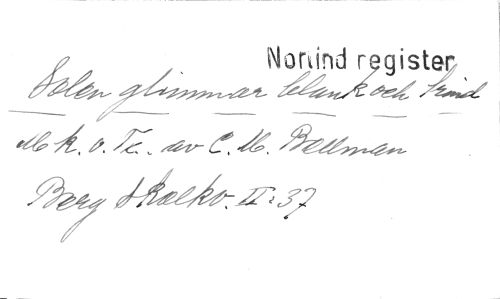 Norlind register
Solen glimmar blank och trind
Mk. o. Tc. av C. M. Bellman
Berg Skolkv. II: 37